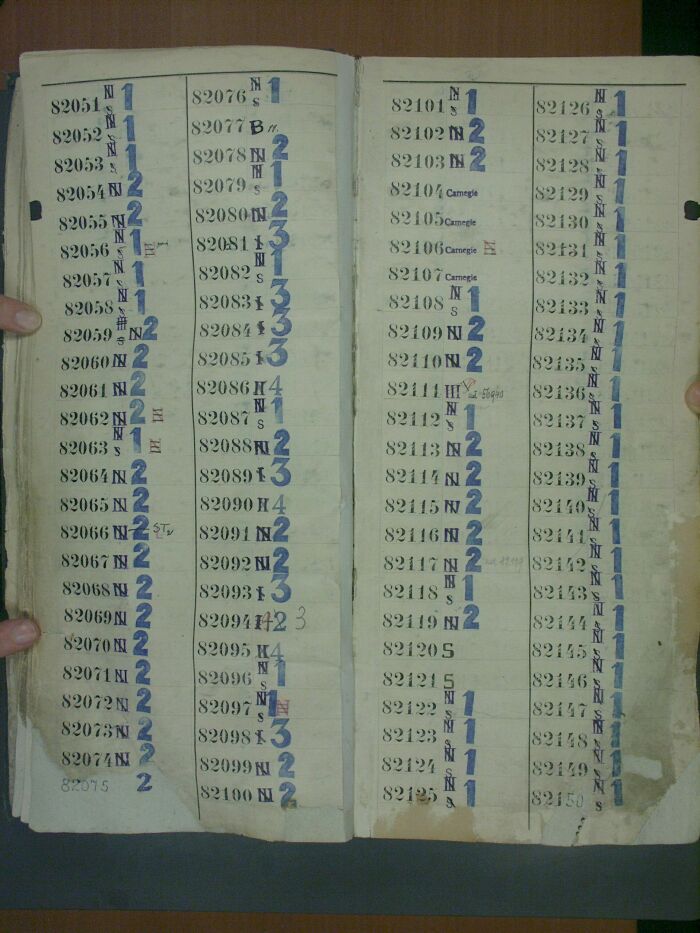 82051 N S 1
82052 N S 1
82053 N S 1
82054 N 2
82055 N 2
82056 N S 1 III
82057 N S 1
82058 N S 1
82059 S N 2
82060 N 2
82061 N 2
82062 N 2 III
82063 N S 1 III
82064 N 2
82065 N 2
82066 N 2
82067 N 2
82068 N 2
82069 N 2
82070 N 2
82071 N 2
82072 N 2
82073 N 2
82074 N 2
82075 2
82076 N S 1
82077 B
82078 N 2
82079 N S 1
82080 N 2
82081 I 3
82082 N S 1
82083 I 3
82084 I 3
82085 I 3
82086 H 4
82087 N S 1
82088 N 2
82089 I 3
82090 H 4
82091 N 2
82092 N 2
82093 I 3
82094 2 3
82095 H 4
82096 N S 1
82097 N S 1
82098 I 3
82099 N 2
82100 N 2
82101 N S 1
82102 N 2
82103 N 2
82104 Carnegie
82105 Carnegie
82106 Carnegie
82107 Carnegie
82108 N S 1
82109 N 2
82110 N 2
82111 III
82112 N S 1
82113 N 2
82114 N 2
82115 N 2
82116 N 2
82117 N 2
82118 N S 1
82119 N 2
82120 S
82121 S
82122 N S 1
82123 N S 1
82124 N S 1
82125 N S 1
82126 N S 1
82127 N S 1
82128 N S 1
82129 N S 1
82130 N S 1
82131 N S 1
82132 N S 1
82133 N S 1
82134 N S 1
82135 N S 1
82136 N S 1
82137 N S 1
82138 N S 1
82139 N S 1
82140 N S 1
82141 N S 1
82142 N S 1
82143 N S 1
82144 N S 1
82145 N S 1
82146 N S 1
82147 N S 1
82148 N S 1
82149 N S 1
82150 N S 1